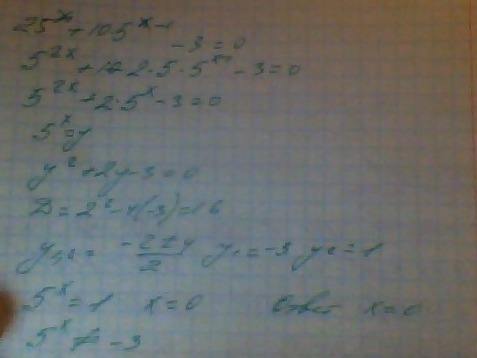 25^x + 10·5^(x-1) - 3 = 0
5^(2x) + 2·5·5^(x-1) - 3 = 0
5^(2x) + 2·5^x - 3 = 0
5^x = y
y² + 2y - 3 = 0
D = 2² - 4(-3) = 16
y₁,₂ = (-2 ± 4)/2 y₁ = -3 y₂ = 1
5^x = 1 x = 0 Ответ x = 0
5^x ≠ -3